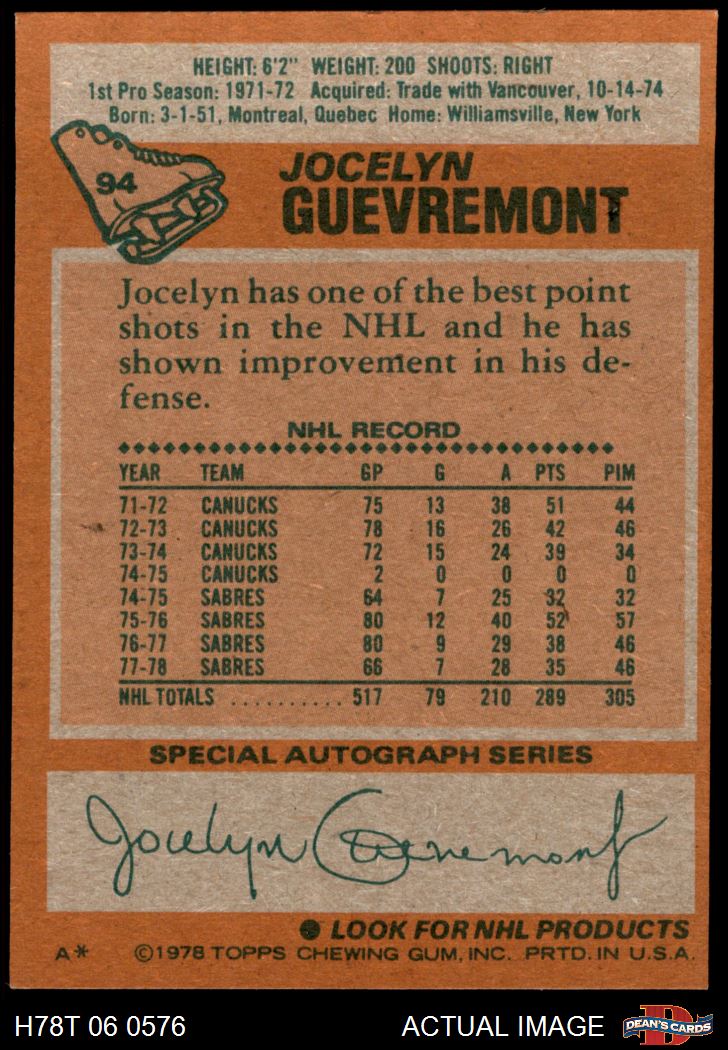 HEIGHT: 6'2" WEIGHT: 200 SHOOTS: RIGHT
1st Pro Season: 1971-72 Acquired: Trade with Vancouver, 10-14-74
Born: 3-1-51, Montreal, Quebec Home: Williamsville, New York
94
JOCELYN
GUEVREMONT
Jocelyn has one of the best point
shots in the NHL and he has
shown improvement in his de-
fense.
NHL RECORD
YEAR TEAM GP G A PTS PIM
71-72 CANUCKS 75 13 38 51 44
72-73 CANUCKS 78 16 26 42 46
73-74 CANUCKS 72 15 24 39 34
74-75 CANUCKS 2 0 0 0 0
74-75 SABRES 64 7 25 32 32
75-76 SABRES 80 12 40 52 57
76-77 SABRES 80 9 29 38 46
77-78 SABRES 66 7 28 35 46
NHL TOTALS .......... 517 79 210 289 305
SPECIAL AUTOGRAPH SERIES
Jocelyn Guevremont
● LOOK FOR NHL PRODUCTS
A* ©1978 TOPPS CHEWING GUM, INC. PRTD. IN U.S.A.
H78T 06 0576 ACTUAL IMAGE DEAN'S CARDS